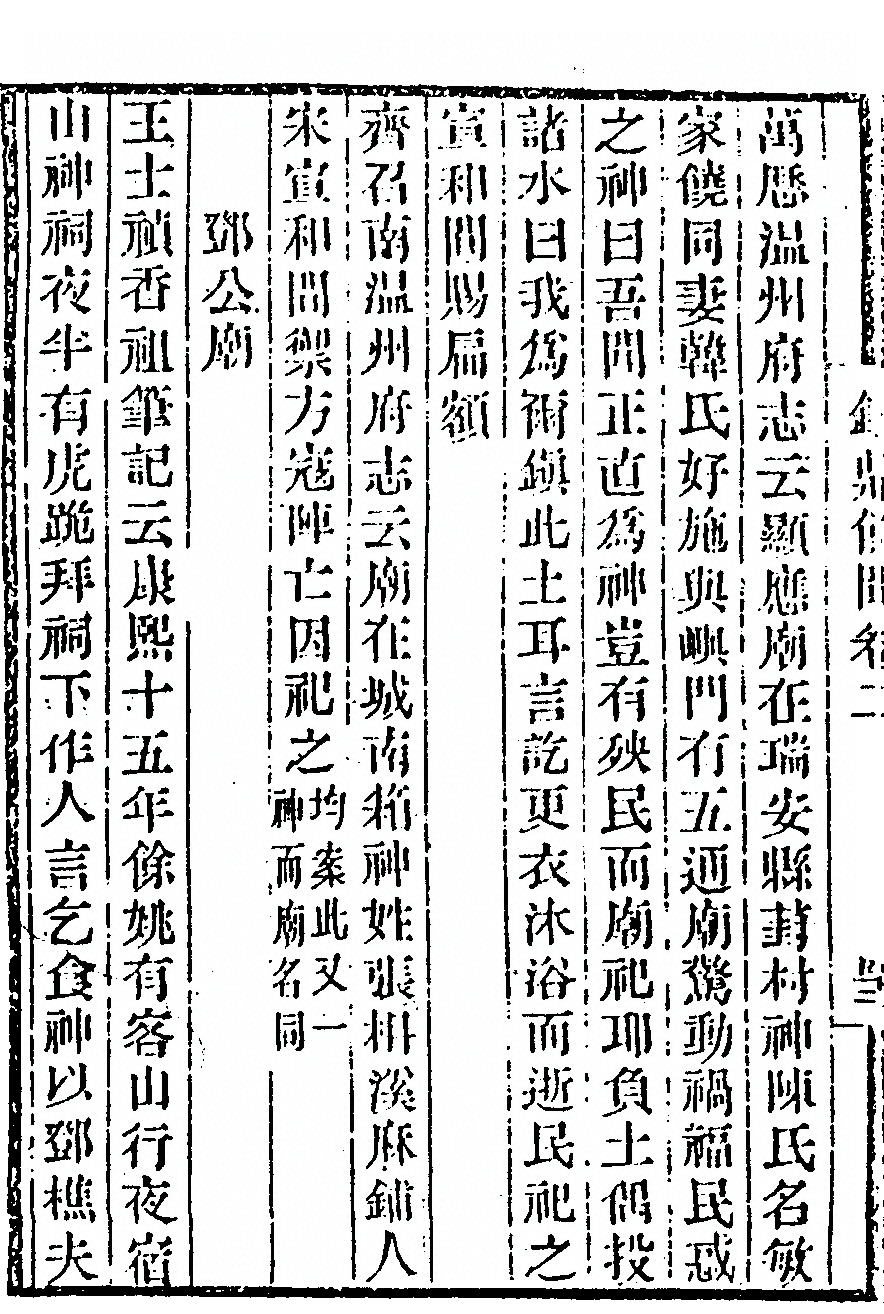 萬厯温州府志云顯應廟在瑞安縣葑村神陳氏名敏
家饒同妻韓氏好施與嶼門有五通廟驚動禍福民惑
之神曰吾聞正直爲神豈有殃民而廟祀耶負土偶投
諸水曰我爲爾鎭此土耳言訖更衣沐浴而逝民祀之
宣和間賜扁額
齊召南温州府志云廟在城南廂神姓張枏溪麻鋪人
宋宣和間禦方寇陣亡因祀之均案此又一神而廟名同
鄧公廟
王士禎香祖筆記云康熙十五年餘姚有客山行夜宿
山神祠夜半有虎跪拜祠下作人言乞食神以鄧樵夫